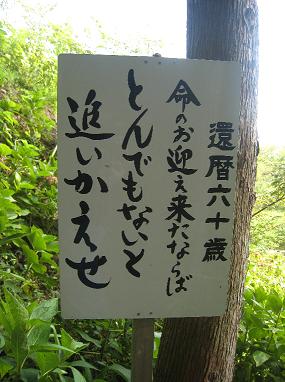 還暦六十歳
命のお迎え来たならば
とんでもないと
追いかえせ